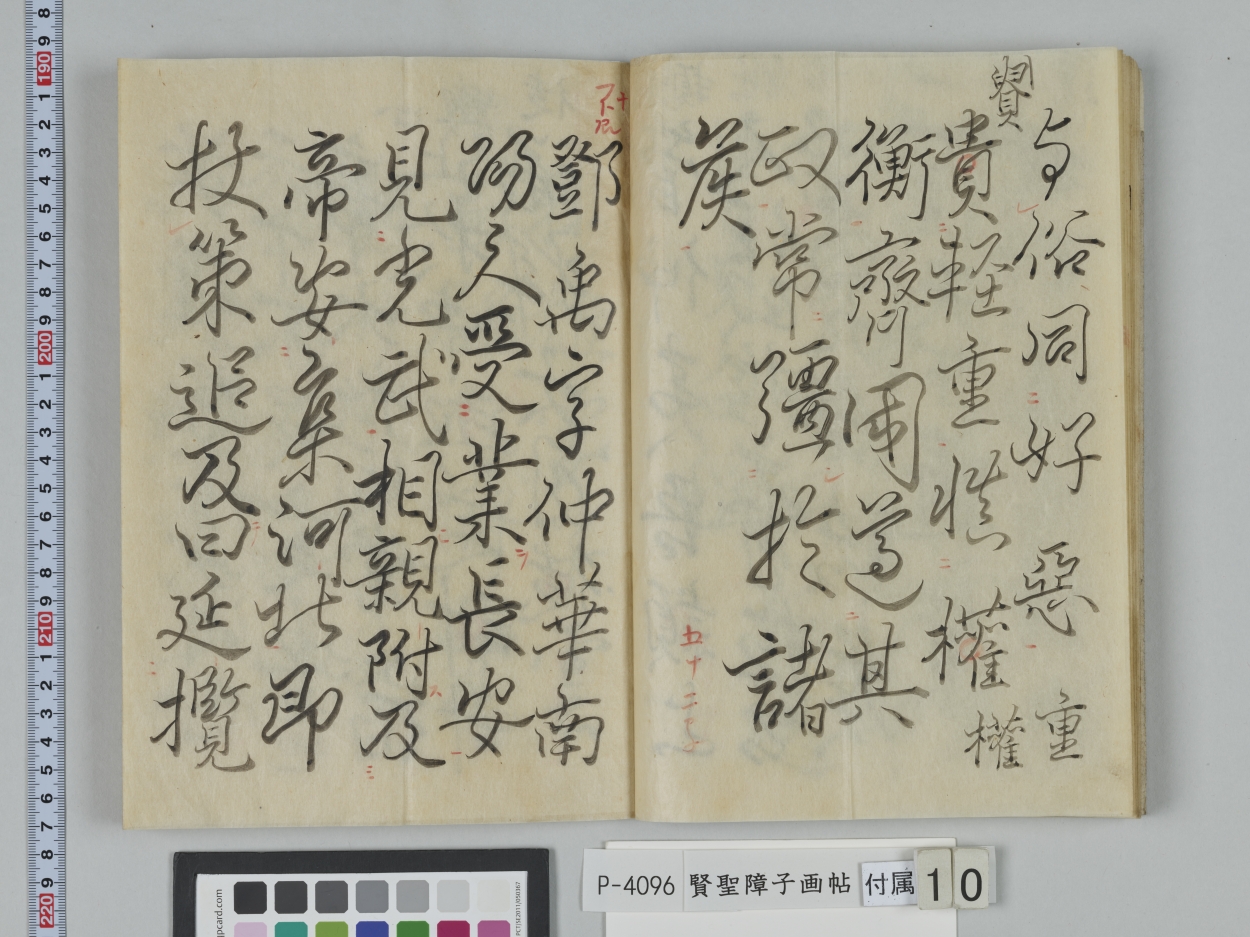 与俗同好惡
重
貴軽重慎權
權
衡齊国遵其
政常彊於諸
侯
鄧禹字仲華南
陽人受業長安
見光武相親附及
帝安集河北即
杖策追及曰延攬
P-4096 賢聖障子画帖 付属 10